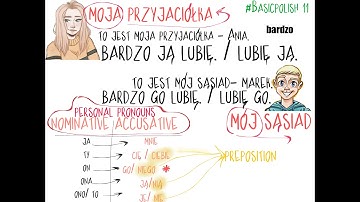 MOJA PRZYJACIÓŁKA
#BASICPOLISH 11
bardzo
TO JEST MOJA PRZYJACIÓŁKA - ANIA.
BARDZO JĄ LUBIĘ. / LUBIĘ JĄ.
TO JEST MÓJ SĄSIAD - MAREK.
BARDZO GO LUBIĘ. / LUBIĘ GO.
MÓJ SĄSIAD
PERSONAL PRONOUNS
NOMINATIVE ACCUSATIVE
JA MNIE
TY CIĘ / CIEBIE
ON GO / NIEGO *
ONA JĄ / NIĄ
ONO / TO JE / NIE
PREPOSITION